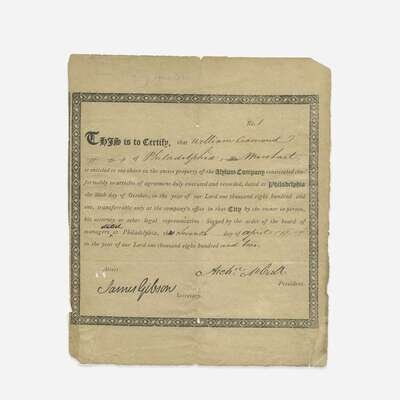 No. 1
THIS is to Certify, that William Cramond
of Philadelphia, Merchant
is entitled to one share in the entire property of the Asylum Company constituted con-
formably to articles of agreement duly executed and recorded, dated at Philadelphia
the day of October, in the year of our Lord one thousand eight hundred and
one, transferrable only at the company's office in that City by the owner in person,
his attorney or other legal representative: Signed by the order of the board of
managers at Philadelphia, the Seventh day of April
in the year of our Lord one thousand eight hundred and two
Attest
James Gibson Archd McCall
Secretary. President.